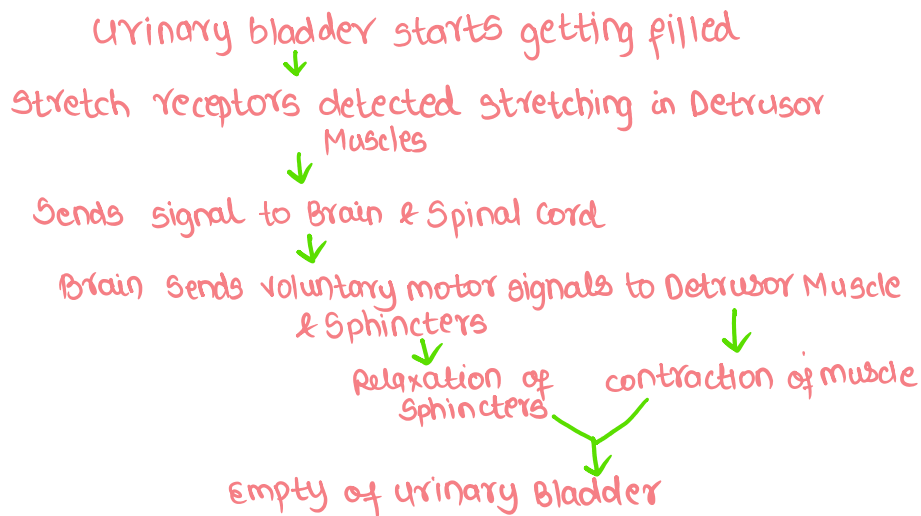 Urinary bladder starts getting filled
Stretch receptors detected stretching in Detrusor
Muscles
Sends signal to Brain & Spinal Cord
Brain Sends voluntary motor signals to Detrusor Muscle
& Sphincters
Relaxation of
Sphincters
contraction of muscle
Empty of Urinary Bladder